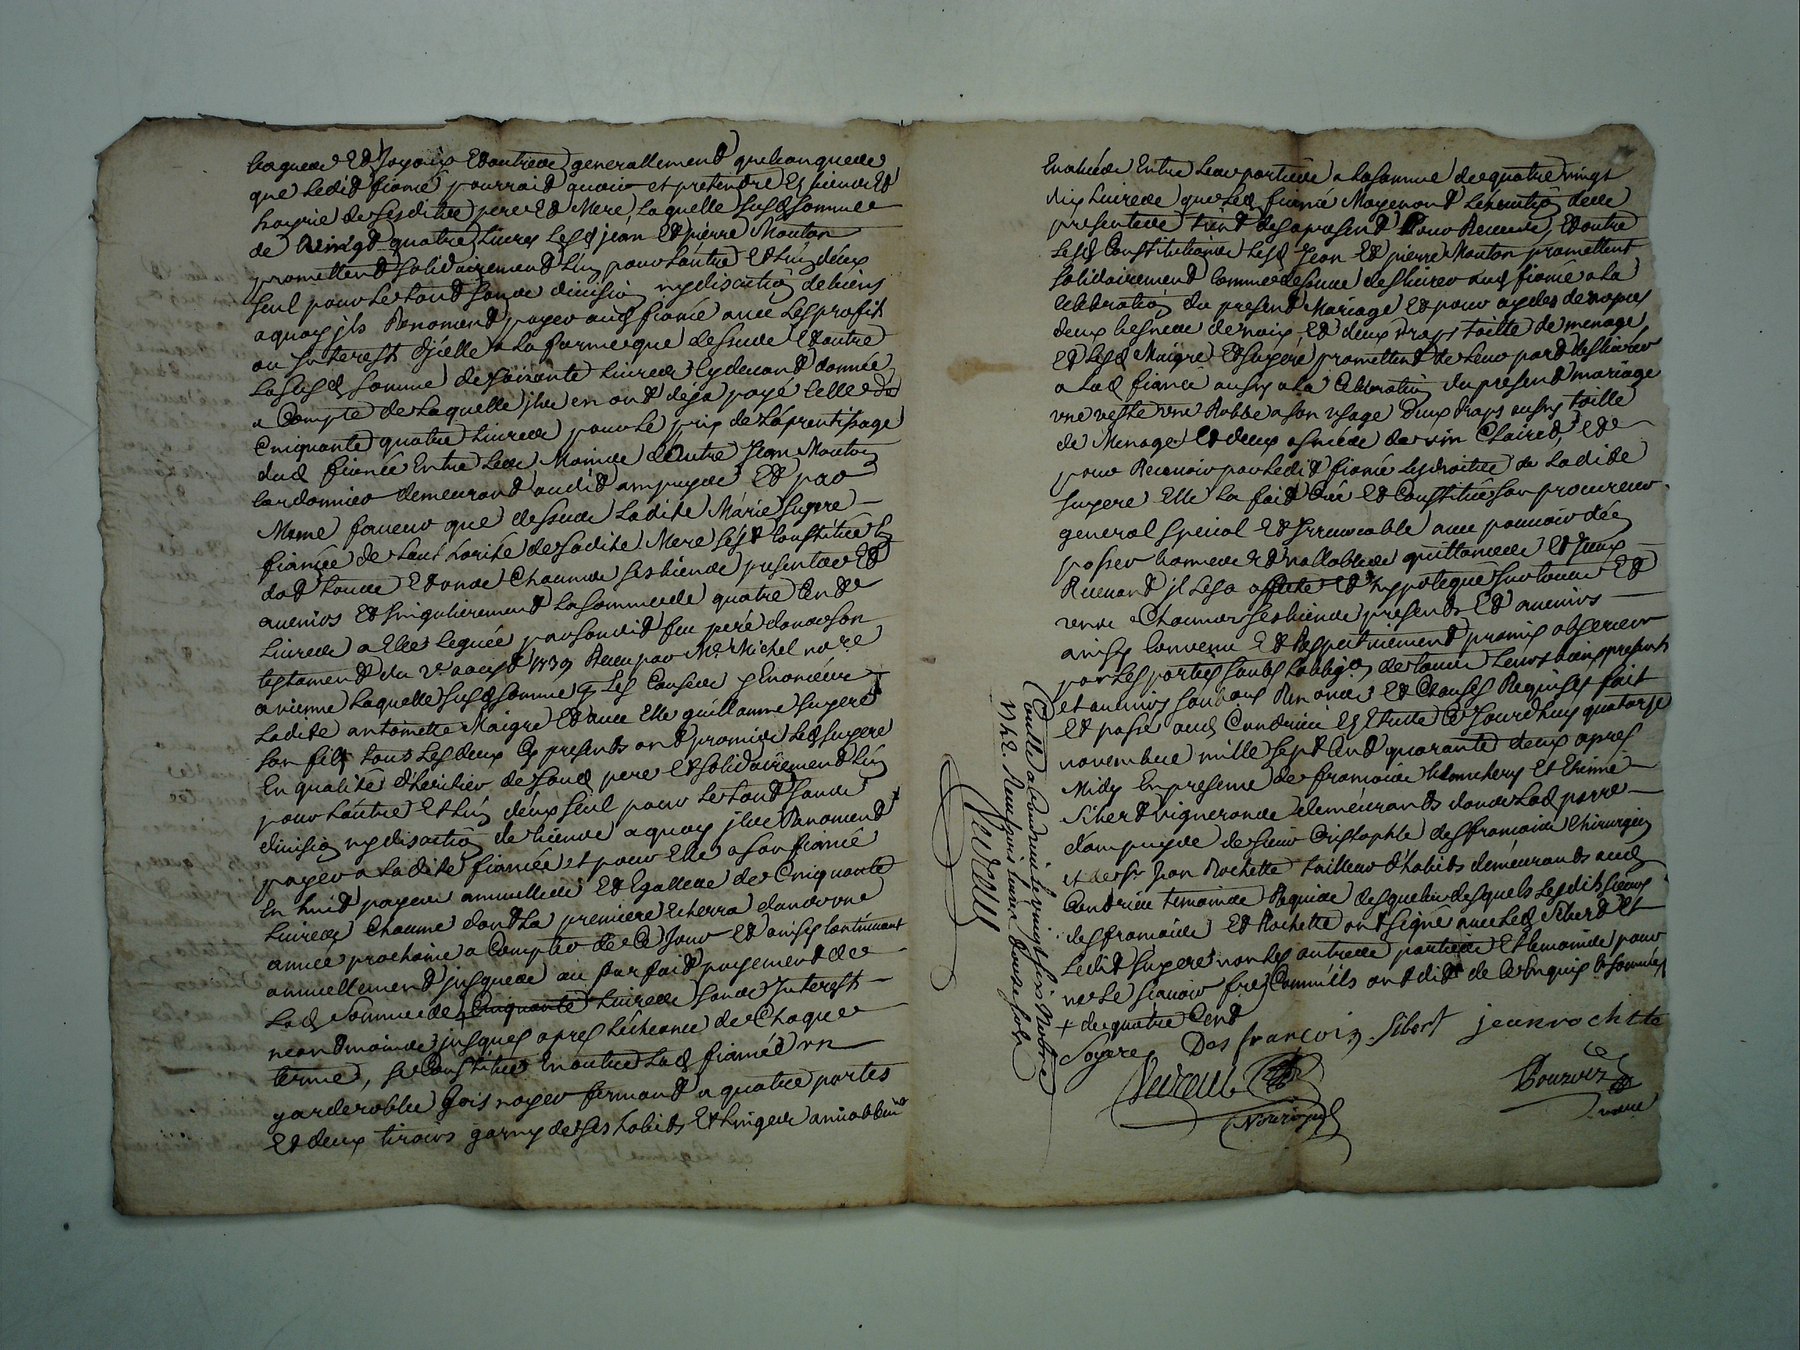 bagues Et Joyaux Et autres generallement quelconques
que ledit fiancé pourroit avoir et pretendre Es biens Et
hoyrie de sesdites pere Et Mere, laquelle susd somme
de Vaingt quatre livres Lesd jean Et pierre Mouton
promettent solidairement L'un pour l'autre Et l'un deux
seul pour le tout sans division ny discution de biens
a quoy jls Renoncent payer aud fiancé avec les profit
ou Interest d'jcelle a la forme que dessus Et outre
la susd somme de soixante livres cy devant donnée
a Compte de laquelle jls en ont déja payé celle de
Cinquante quatre livres pour le prix de l'aprentissage
dud fiancé Entre les Mains dautre Jean Mouton
cordonnier demeurant audit ampuys Et par
Meme faveur que dessus Ladite Marie Sugere
fiancée de l'aut'horité de sadite Mere s'est Constituée En
dot tous Et uns Chacuns ses biens presents Et
avenirs Et singulierement la somme de quatre Cent
livres a Elle leguée par sondit feu pere dans son
testament du 2e aoust 1739 Receu par Me Michel nore
a vienne laquelle susd somme
Ladite antoinette Maigre Et avec Elle guillaume Sugere
son fils tous les deux Cy presents ont promis led Sugere
En qualité d'heritier de sond pere Et solidairement L'un
pour l'autre Et l'un deux seul pour le tout sans
division ny discution de biens a quoy jls Renoncent
payer a ladite fiancée et pour Elle a son fiancé
En huit payes annuelles Et Egalles de Cinquante
livres Chacune dont la premiere Echerra dans une
année prochaine a Compter de Ce Jour Et ainsy continuant
annuellement jusques au parfait payement de
Lad somme de Cinquante livres sans Interest
neantmoins jusques apres l'echeance de Chaque
terme, se Constitue En outre lad fiancée un
garderobbe bois noyer fermant a quatre portes
Et deux tiroirs garny de ses habits Et linges amiablement
Evalués Entre les parties a la somme de quatre vingt
dix livres que led fiancé Moyenant
presentes tient des apresent pour Receus, Et outre
lesd Constitutions lesd Jean Et pierre Mouton promettent
solidairement comme dessus deslivrer aud fiancé a la
Celebration du present Mariage Et pour
deux de noix, Et deux draps toille de menage,
Et lesd Maigre Et Sugere promettent de leur part deslivrer
a lad fiancée aussy a la Celebration du present mariage
une veste une Robbe a son usage deux draps aussy toille
de Menage Et deux asnées de vin Clairet, Et
pour Recevoir par ledit fiancé les droits de Ladite
Sugere Elle la fait Créé Et Constitué son procureur
general special Et Irrevocable avec pouvoir d'en
passer bonnes Et vallables quittances Et ceux
Recevant jl les a affecté Et hypotequé sur tous Et
uns Chacuns ses biens presents Et avenirs
ainsy convenu Et Respectivement promis observer
par les parties sous l'obligon de tous leurs biens presents
et avenirs soubmis Renonce Et Clauses Requises fait
Et passé aud Condrieu En Etude Ce Jourdhuy quatorze
novembre mille sept Cent quarante deux apres
Midy En presence de francois Et Etienne
Sibert vignerons demeurants dans lad parre
d'ampuys de sieur Cristophle desfrancois Chirurgien
et de Sr Jean Rochette tailleur d'habits demeurants aud
Condrieu temoins Requis desquels lesdits sieurs
desfrancois Et Rochette ont signé avec led Sibert Et
Ledit Sugere non les autres parties Et temoins pour
ne le scavoir fre Comm'ils ont dit de Ce Enquis Et sommés
+ de quatre Cent
Sogere Desfrançois Sibert jean rochette
Controllé a Condrieu le vingt six Novbre
1742. Receu livres douze sols